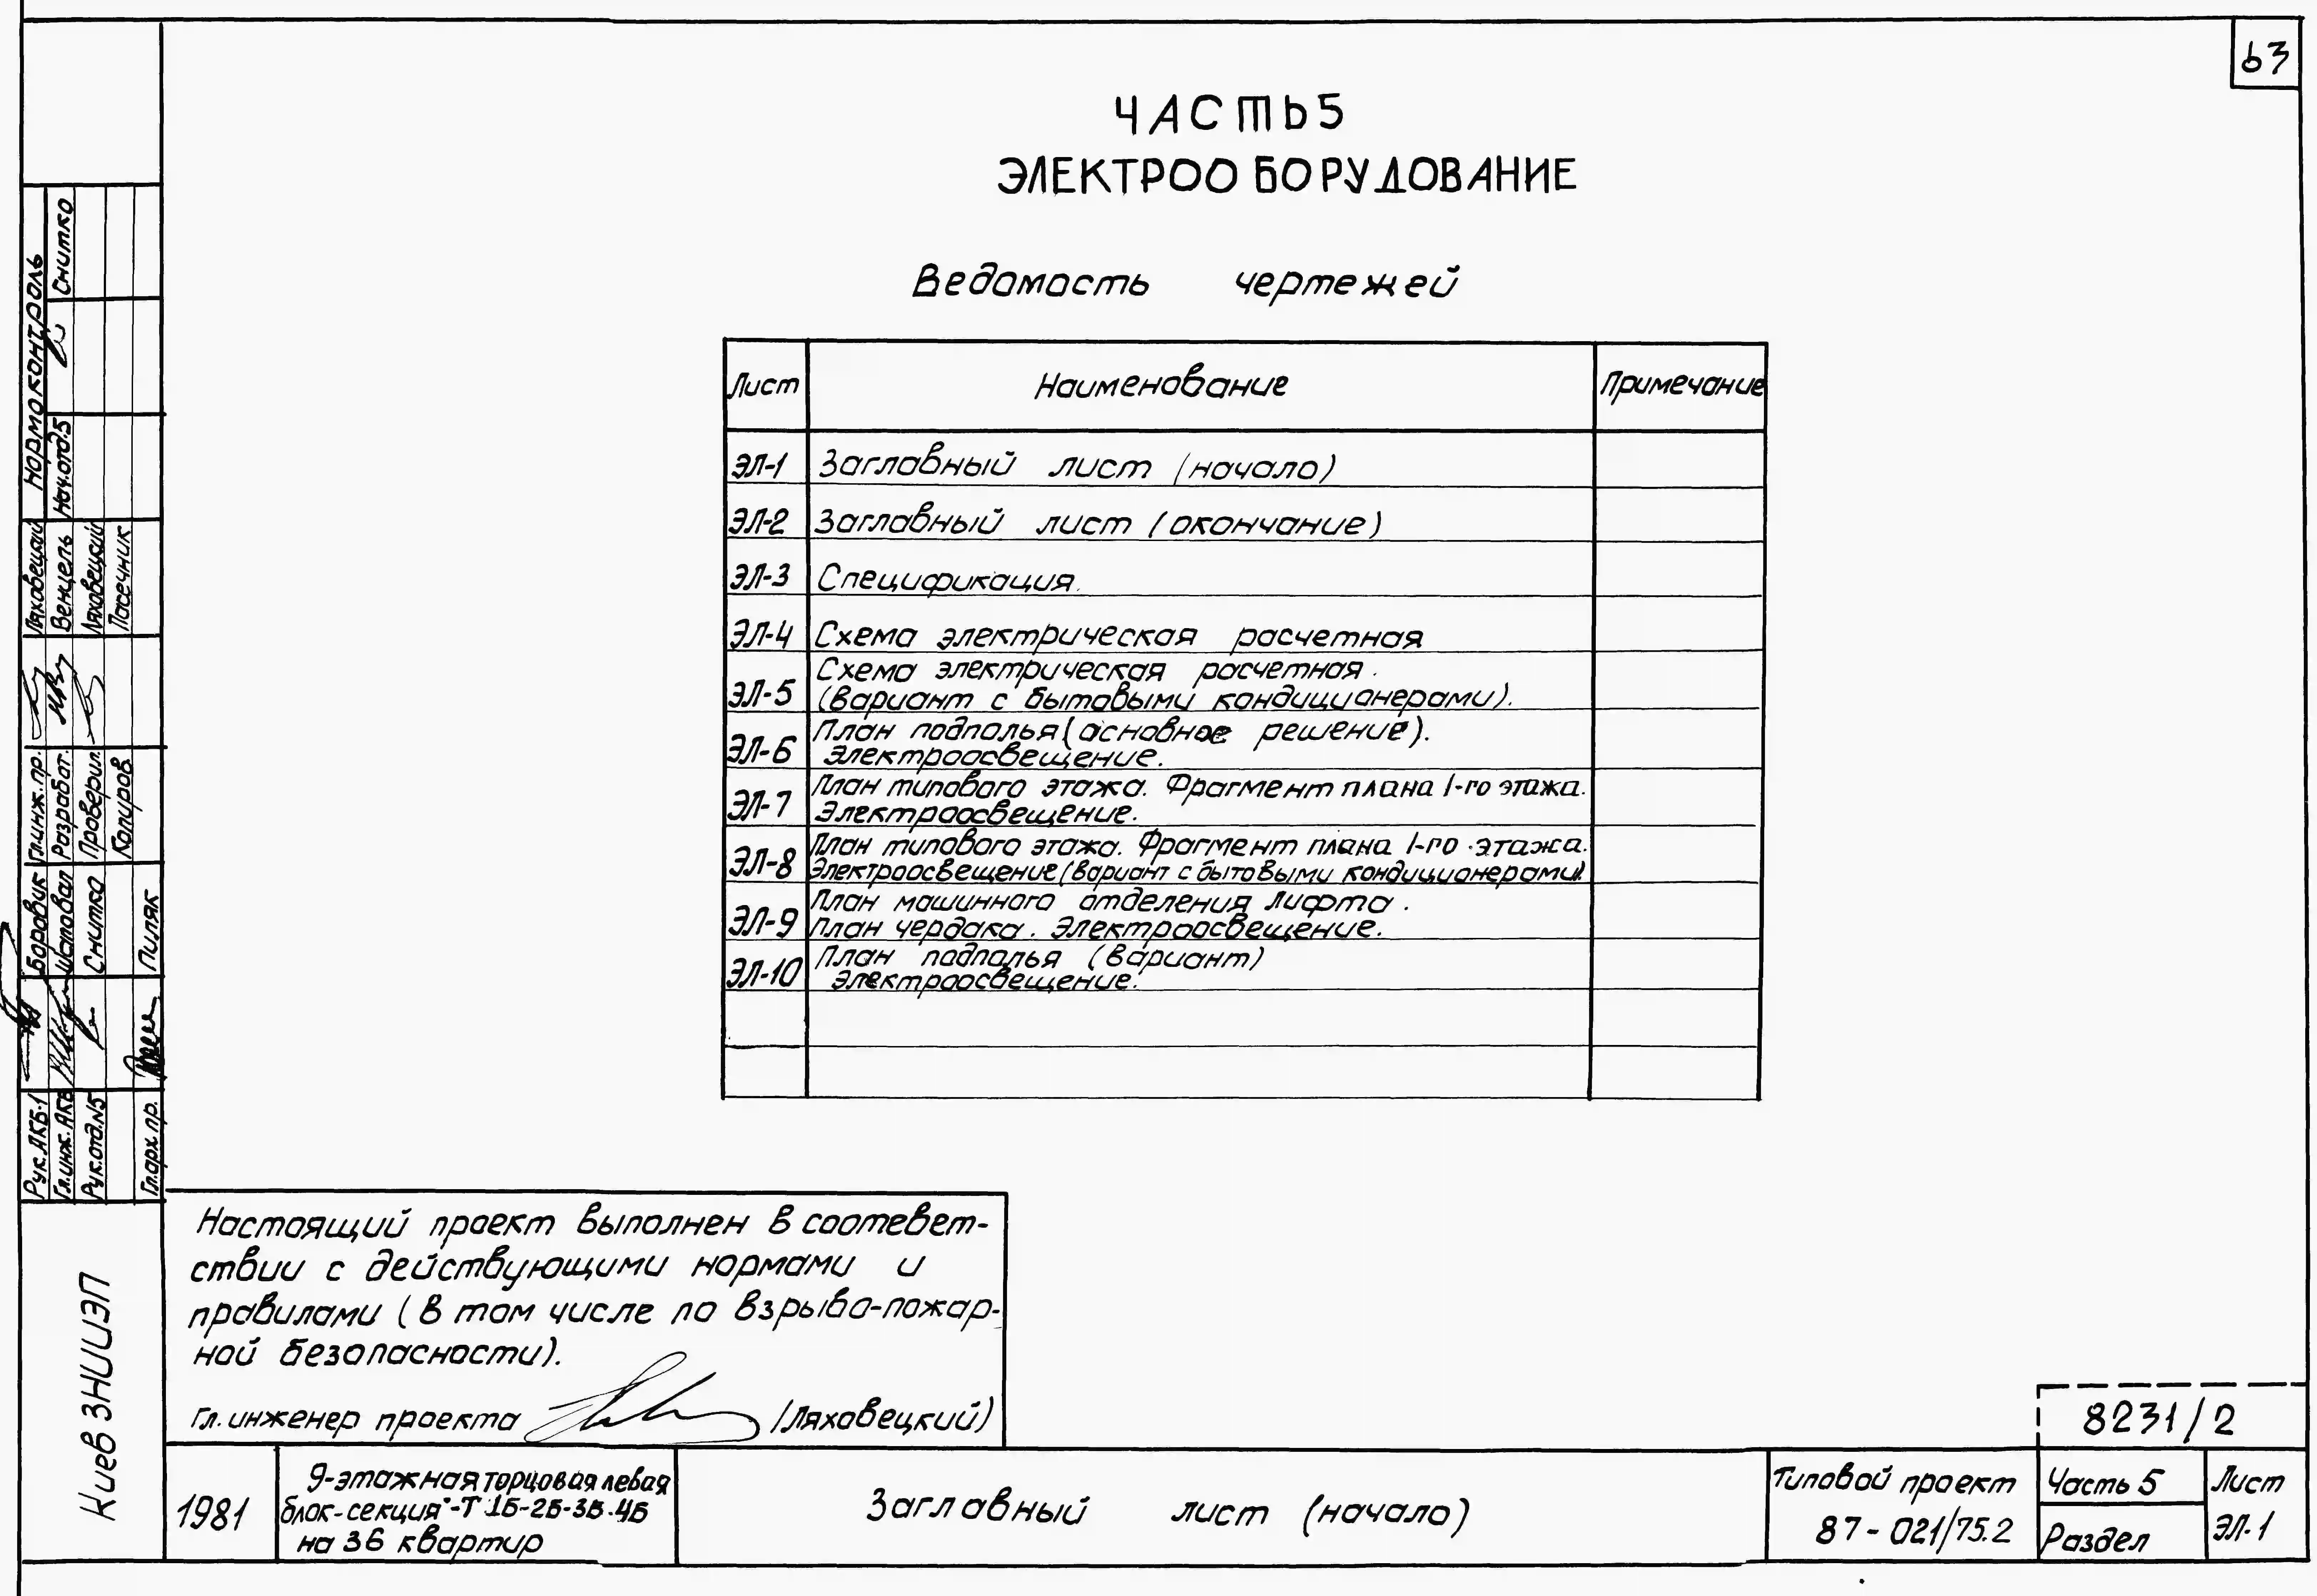 63
ЧАСТЬ 5
ЭЛЕКТРООБОРУДОВАНИЕ
Ведомость чертежей
Лист Наименование Примечание
ЭЛ-1 Заглавный лист (начало)
ЭЛ-2 Заглавный лист (окончание)
ЭЛ-3 Спецификация.
ЭЛ-4 Схема электрическая расчетная
ЭЛ-5 Схема электрическая расчетная.
(вариант с бытовыми кондиционерами).
ЭЛ-6 План подполья (основное решение).
Электроосвещение.
ЭЛ-7 План типового этажа. Фрагмент плана 1-го этажа.
Электроосвещение.
ЭЛ-8 План типового этажа. Фрагмент плана 1-го этажа.
Электроосвещение (вариант с бытовыми кондиционерами)
ЭЛ-9 План машинного отделения лифта.
План чердака. Электроосвещение.
ЭЛ-10 План подполья (вариант)
Электроосвещение.
Настоящий проект выполнен в соотевет-
ствии с действующими нормами и
правилами (в том числе по взрыво-пожар-
ной безопасности).
Гл. инженер проекта /Ляховецкий)
8231/2
1981
9-этажная торцовая левая
блок-секция -Т 1Б-2Б-3Б-4Б
на 36 квартир
Заглавный лист (начало)
Типовой проект
87-021/75.2
Часть 5
Раздел
Лист
ЭЛ-1
Киев ЗНИИЭП
Рук. АКБ-1 Боровик Гл.инж.пр. Ляховецкий Нормоконтроль
Гл.инж. АКБ Шаповал Разработ. Венцель Нач.отд.5 Снитко
Рук.отд.№5 Снитко Проверил. Ляховецкий
Копиров. Пасечник
Гл.арх.пр. Пиляк